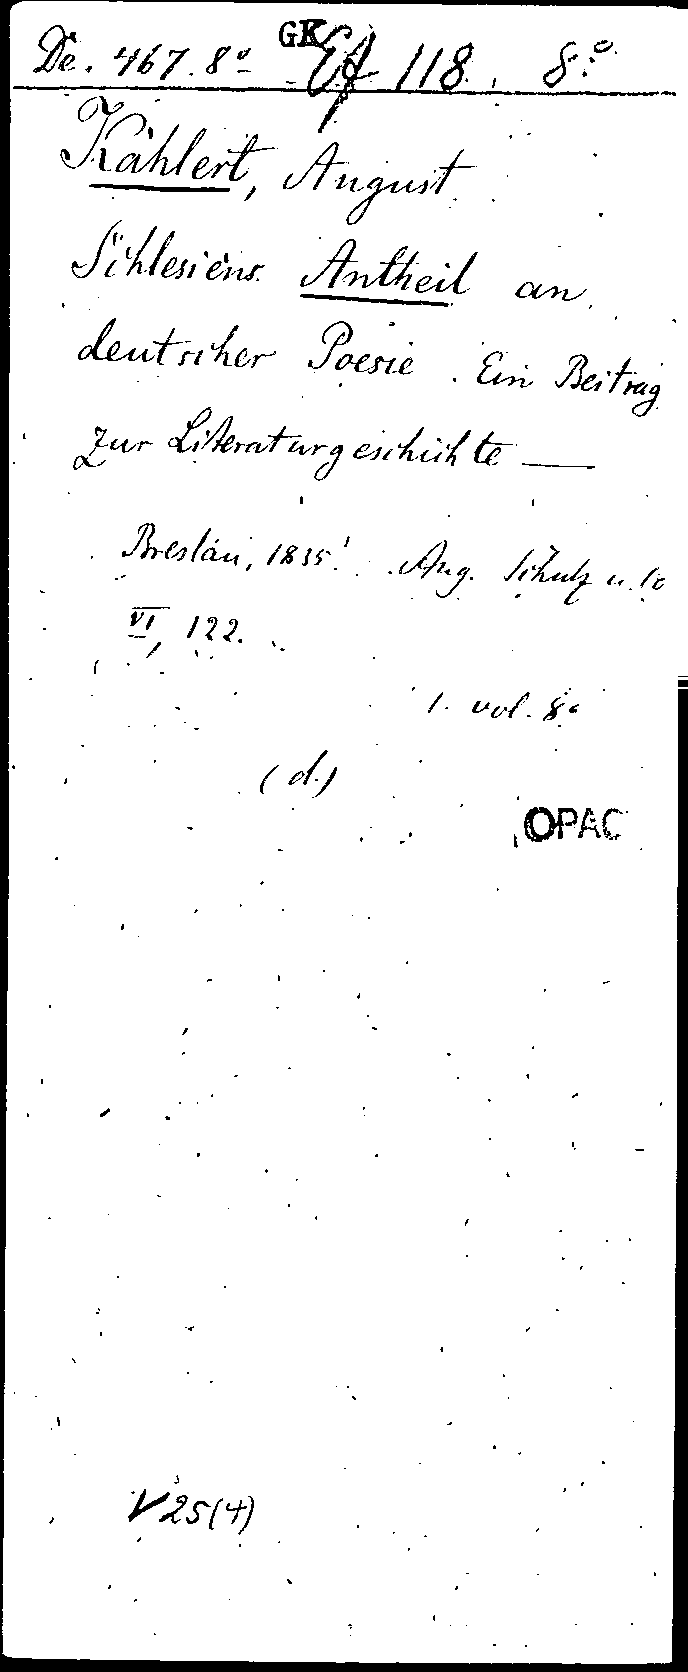 De. 467. 8º GK Ef 118. 8º
Kahlert, August
Schlesiens Antheil an
deutscher Poesie. Ein Beitrag
zur Literaturgeschichte —
Breslau, 1835. Aug. Schulz u. Co
VI, 122.
1. vol. 8º
(d.)
OPAC
V25(4)